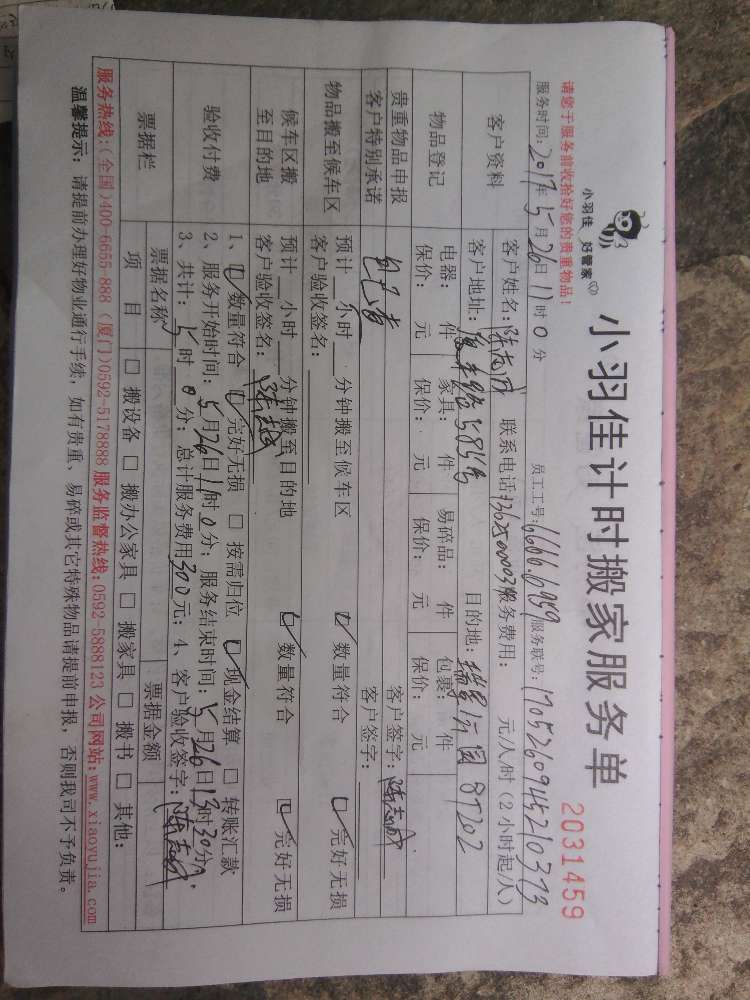 小羽佳 好管家
小羽佳计时搬家服务单
2031459
请您于服务前收拾好您的贵重物品！
服务时间：2017年5月26日11时0分 员工工号：6666.6959 服务联号：1705260945210373
客户资料
客户姓名： 联系电话 服务费用： 元/人/时（2小时起/人）
客户地址： 585号 目的地： 8T202
物品登记
电器： 件 家具： 件 易碎品： 件 包裹： 件
保价： 元 保价： 元 保价： 元 保价： 元
贵重物品申报
客户特别承诺
客户签字：
物品搬至候车区
预计 小时 分钟搬至候车区 数量符合 完好无损
客户验收签名： 客户签字：
候车区搬
至目的地
预计 小时 分钟搬至目的地 数量符合 完好无损
客户验收签名：
验收付费
1、 数量符合 完好无损 按需归位 现金结算 转账汇款
2、服务开始时间：5月26日11时0分；服务结束时间：5月26日13时30分；
3、共计： 时0分；总计服务费用300元；4、客户验收签字：
票据栏
票据名称 票据金额
项 目 搬设备 搬办公家具 搬家具 搬书 其他：
服务热线：（全国）400-6655-888（厦门）0592-5178888 服务监督热线：0592-5888123 公司网站：www.xiaoyujia.com
温馨提示：请提前办理好物业通行手续，如有贵重、易碎或其它特殊物品请提前申报，否则我司不予负责。